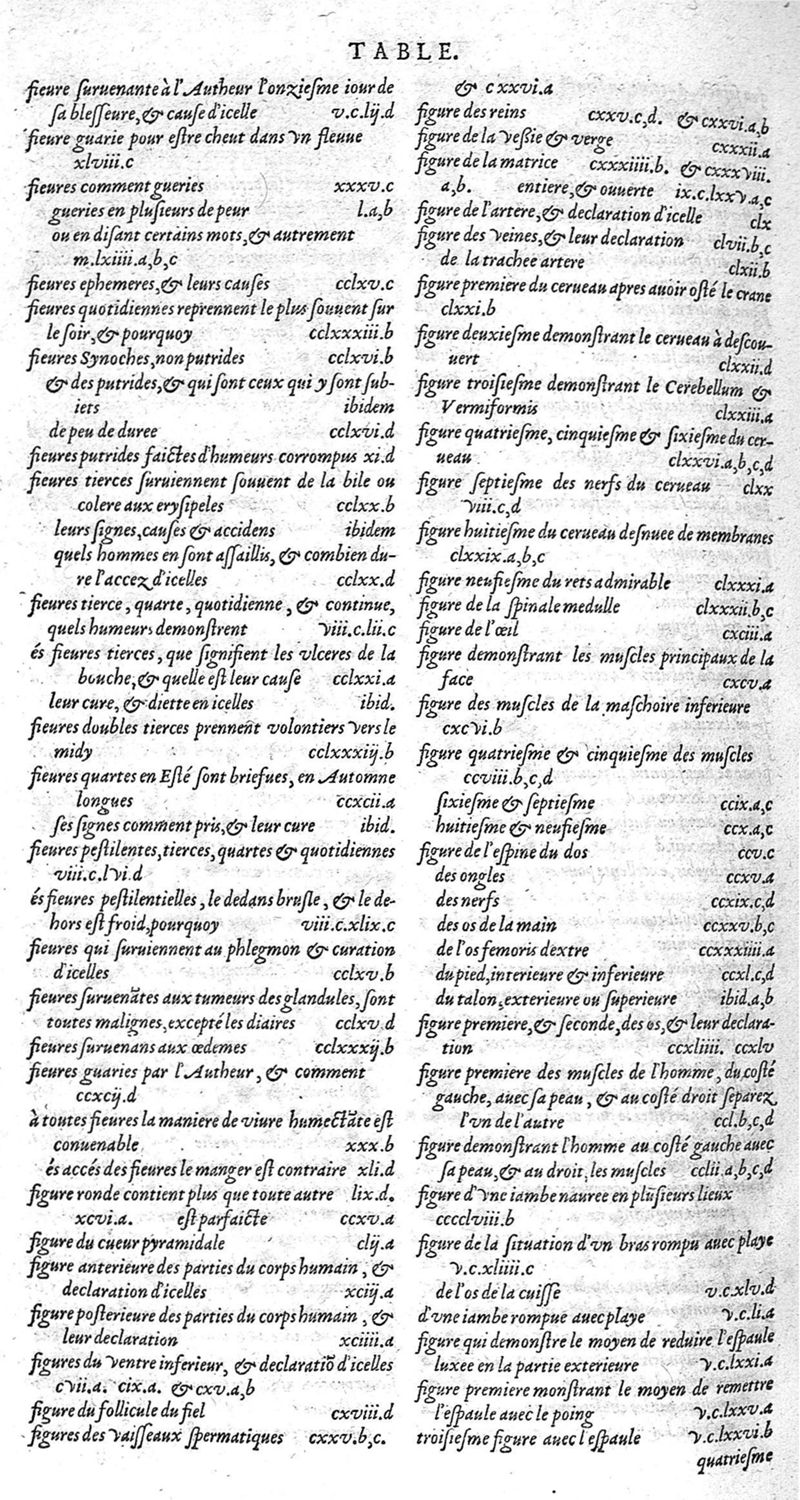 TABLE.
fieure ſuruenante à l'Autheur l'onzieſme iour de
ſa bleſſeure, & cauſe d'icelle v.c.lij.d
fieure guarie pour eſtre cheut dans vn fleuue
xlviii.c
fieures comment gueries xxxv.c
gueries en pluſieurs de peur l.a,b
ou en diſant certains mots, & autrement
m.lxiiii.a,b,c
fieures ephemeres, & leurs cauſes cclxv.c
fieures quotidiennes reprennent le plus ſouuent ſur
le ſoir, & pourquoy cclxxxiii.b
fieures Synoches, non putrides cclxvi.b
& des putrides, & qui ſont ceux qui y ſont ſub-
iets ibidem
de peu de duree cclxvi.d
fieures putrides faictes d'humeurs corrompus xi.d
fieures tierces ſuruiennent ſouuent de la bile ou
colere aux eryſipeles cclxx.b
leurs ſignes, cauſes & accidens ibidem
quels hommes en ſont aſſaillis, & combien du-
re l'accez d'icelles cclxx.d
fieures tierce, quarte, quotidienne, & continue,
quels humeurs demonſtrent viii.c.lii.c
és fieures tierces, que ſignifient les vlceres de la
bouche, & quelle eſt leur cauſe cclxxi.a
leur cure, & diette en icelles ibid.
fieures doubles tierces prennent volontiers vers le
midy cclxxxiij.b
fieures quartes en Eſté ſont briefues, en Automne
longues ccxcii.a
ſes ſignes comment pris, & leur cure ibid.
fieures peſtilentes, tierces, quartes & quotidiennes
viii.c.lvi.d
és fieures peſtilentielles, le dedans bruſle, & le de-
hors eſt froid, pourquoy viii.c.xlix.c
fieures qui ſuruiennent au phlegmon & curation
d'icelles cclxv.b
fieures ſuruenãtes aux tumeurs des glandules, ſont
toutes malignes, excepté les diaires cclxv.d
fieures ſuruenans aux œdemes cclxxxij.b
fieures guaries par l'Autheur, & comment
ccxcij.d
à toutes fieures la maniere de viure humectãte eſt
conuenable xxx.b
és accés des fieures le manger eſt contraire xli.d
figure ronde contient plus que toute autre lix.d.
xcvi.a. eſt parfaicte ccxv.a
figure du cueur pyramidale clij.a
figure anterieure des parties du corps humain, &
declaration d'icelles xciij.a
figure poſterieure des parties du corps humain, &
leur declaration xciiii.a
figures du ventre inferieur, & declaratiõ d'icelles
cvii.a. cix.a. & cxv.a,b
figure du follicule du fiel cxviii.d
figures des vaiſſeaux ſpermatiques cxxv.b,c.
& cxxvi.a
figure des reins cxxv.c,d. & cxxvi.a,b
figure de la veſsie & verge cxxxii.a
figure de la matrice cxxxiiii.b. & cxxxviii.
a,b. entiere, & ouuerte ix.c.lxxv.a,c
figure de l'artere, & declaration d'icelle clx
figure des veines, & leur declaration clvii.b,c
de la trachee artere clxii.b
figure premiere du cerueau apres auoir oſté le crane
clxxi.b
figure deuxieſme demonſtrant le cerueau à deſcou-
uert clxxii.d
figure troiſieſme demonſtrant le Cerebellum &
Vermiformis clxxiii.a
figure quatrieſme, cinquieſme & ſixieſme du cer-
ueau clxxvi.a,b,c,d
figure ſeptieſme des nerfs du cerueau clxx
viii.c,d
figure huitieſme du cerueau deſnuee de membranes
clxxix.a,b,c
figure neufieſme du rets admirable clxxxi.a
figure de la ſpinale medulle clxxxii.b,c
figure de l'œil cxciii.a
figure demonſtrant les muſcles principaux de la
face cxcv.a
figure des muſcles de la maſchoire inferieure
cxcvi.b
figure quatrieſme & cinquieſme des muſcles
ccviii.b,c,d
ſixieſme & ſeptieſme ccix.a,c
huitieſme & neufieſme ccx.a,c
figure de l'eſpine du dos ccv.c
des ongles ccxv.a
des nerfs ccxix.c,d
des os de la main ccxxv.b,c
de l'os femoris dextre ccxxxiiii.a
du pied, interieure & inferieure ccxl.c,d
du talon, exterieure ou ſuperieure ibid.a,b
figure premiere, & ſeconde, des os, & leur declara-
tion ccxliiii. ccxlv
figure premiere des muſcles de l'homme, du coſté
gauche, auec ſa peau, & au coſté droit ſeparez
l'vn de l'autre ccl.b,c,d
figure demonſtrant l'homme au coſté gauche auec
ſa peau, & au droit, les muſcles cclii.a,b,c,d
figure d'vne iambe nauree en pluſieurs lieux
cccclviii.b
figure de la ſituation d'vn bras rompu auec playe
v.c.xliiii.c
de l'os de la cuiſſe v.c.xlv.d
d'vne iambe rompue auec playe v.c.li.a
figure qui demonſtre le moyen de reduire l'eſpaule
luxee en la partie exterieure v.c.lxxi.a
figure premiere monſtrant le moyen de remettre
l'eſpaule auec le poing v.c.lxxv.a
troiſieſme figure auec l'eſpaule v.c.lxxvi.b
quatrieſme